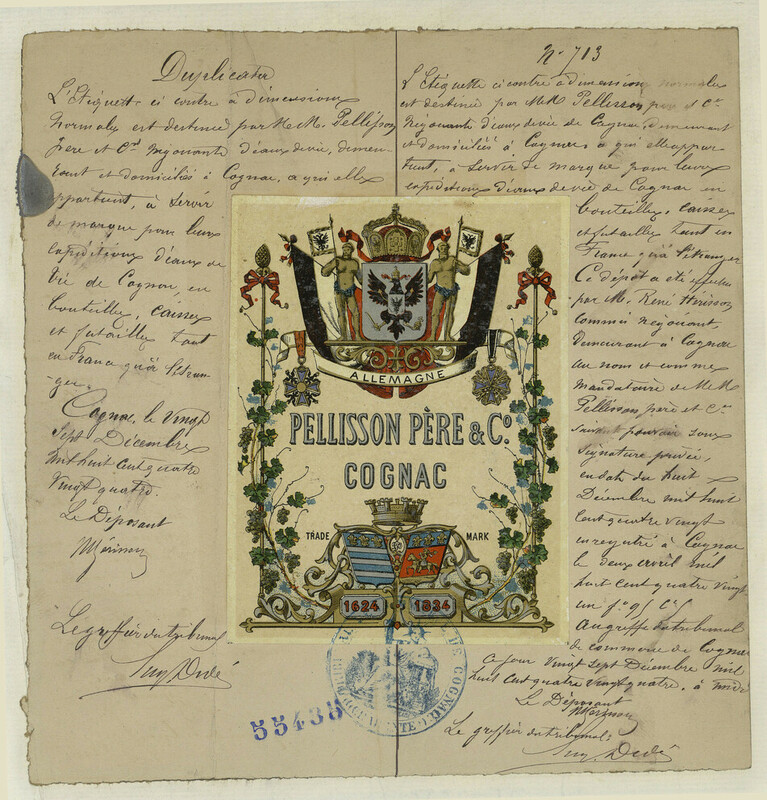 Duplicata
L'Etiquette ci contre à dimensions
normales est destinée par M.M. Pellisson
père et Cie Négociants d'eaux de vie, demeu-
rant et domiciliés à Cognac, à qui elle
appartient, à servir
de marque pour leurs
expéditions d'eaux de
vie de Cognac en
bouteilles, caisses
et futailles tant
en France qu'à l'étran-
ger.
Cognac, le vingt
sept Décembre
mil huit cent quatre
vingt quatre.
Le Déposant
Le greffier du tribunal
N° 713
L'Etiquette ci contre à dimensions normales
est destinée par M.M. Pellisson père et Cie
Négociants d'eaux de vie de Cognac, demeurant
et domiciliés à Cognac, à qui elle appar-
tient, à servir de marque pour leurs
expéditions d'eaux de vie de Cognac en
bouteilles, caisses
et futailles tant en
France qu'à l'étranger
Ce dépôt a été effectué
par M. René Hérisson
commis négociant,
demeurant à Cognac
au nom et comme
mandataire de M.M.
Pellisson père et Cie
suivant pouvoir sous
signature privée,
en date du huit
Décembre mil huit
cent quatre vingt
enregistré à Cognac
le deux avril mil
huit cent quatre vingt
un
au greffe du tribunal
de commerce de Cognac
ce jour vingt sept Décembre mil
huit cent quatre vingt quatre, à midi
Le Déposant
Le greffier du tribunal
ALLEMAGNE
PELLISSON PÈRE & Co.
COGNAC
TRADE MARK
1624 1834
55435